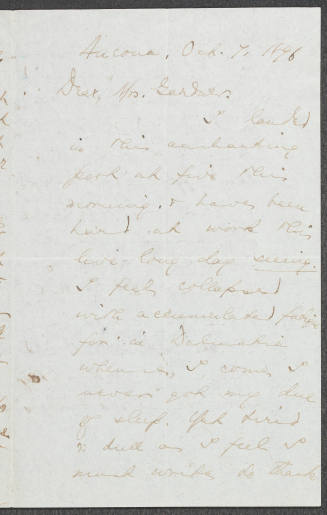 Ancona, Oct. 7, 1896
Dear Mrs. Gardner.
I landed
in this enchanting
port at five this
morning, & have been
hard at work this
live long day seeing.
I feel collapsed
with accumulated
for in Dalmatia
whence I come I
never got my due
of sleep. Yet tired
& dull as I feel I
must write to thank